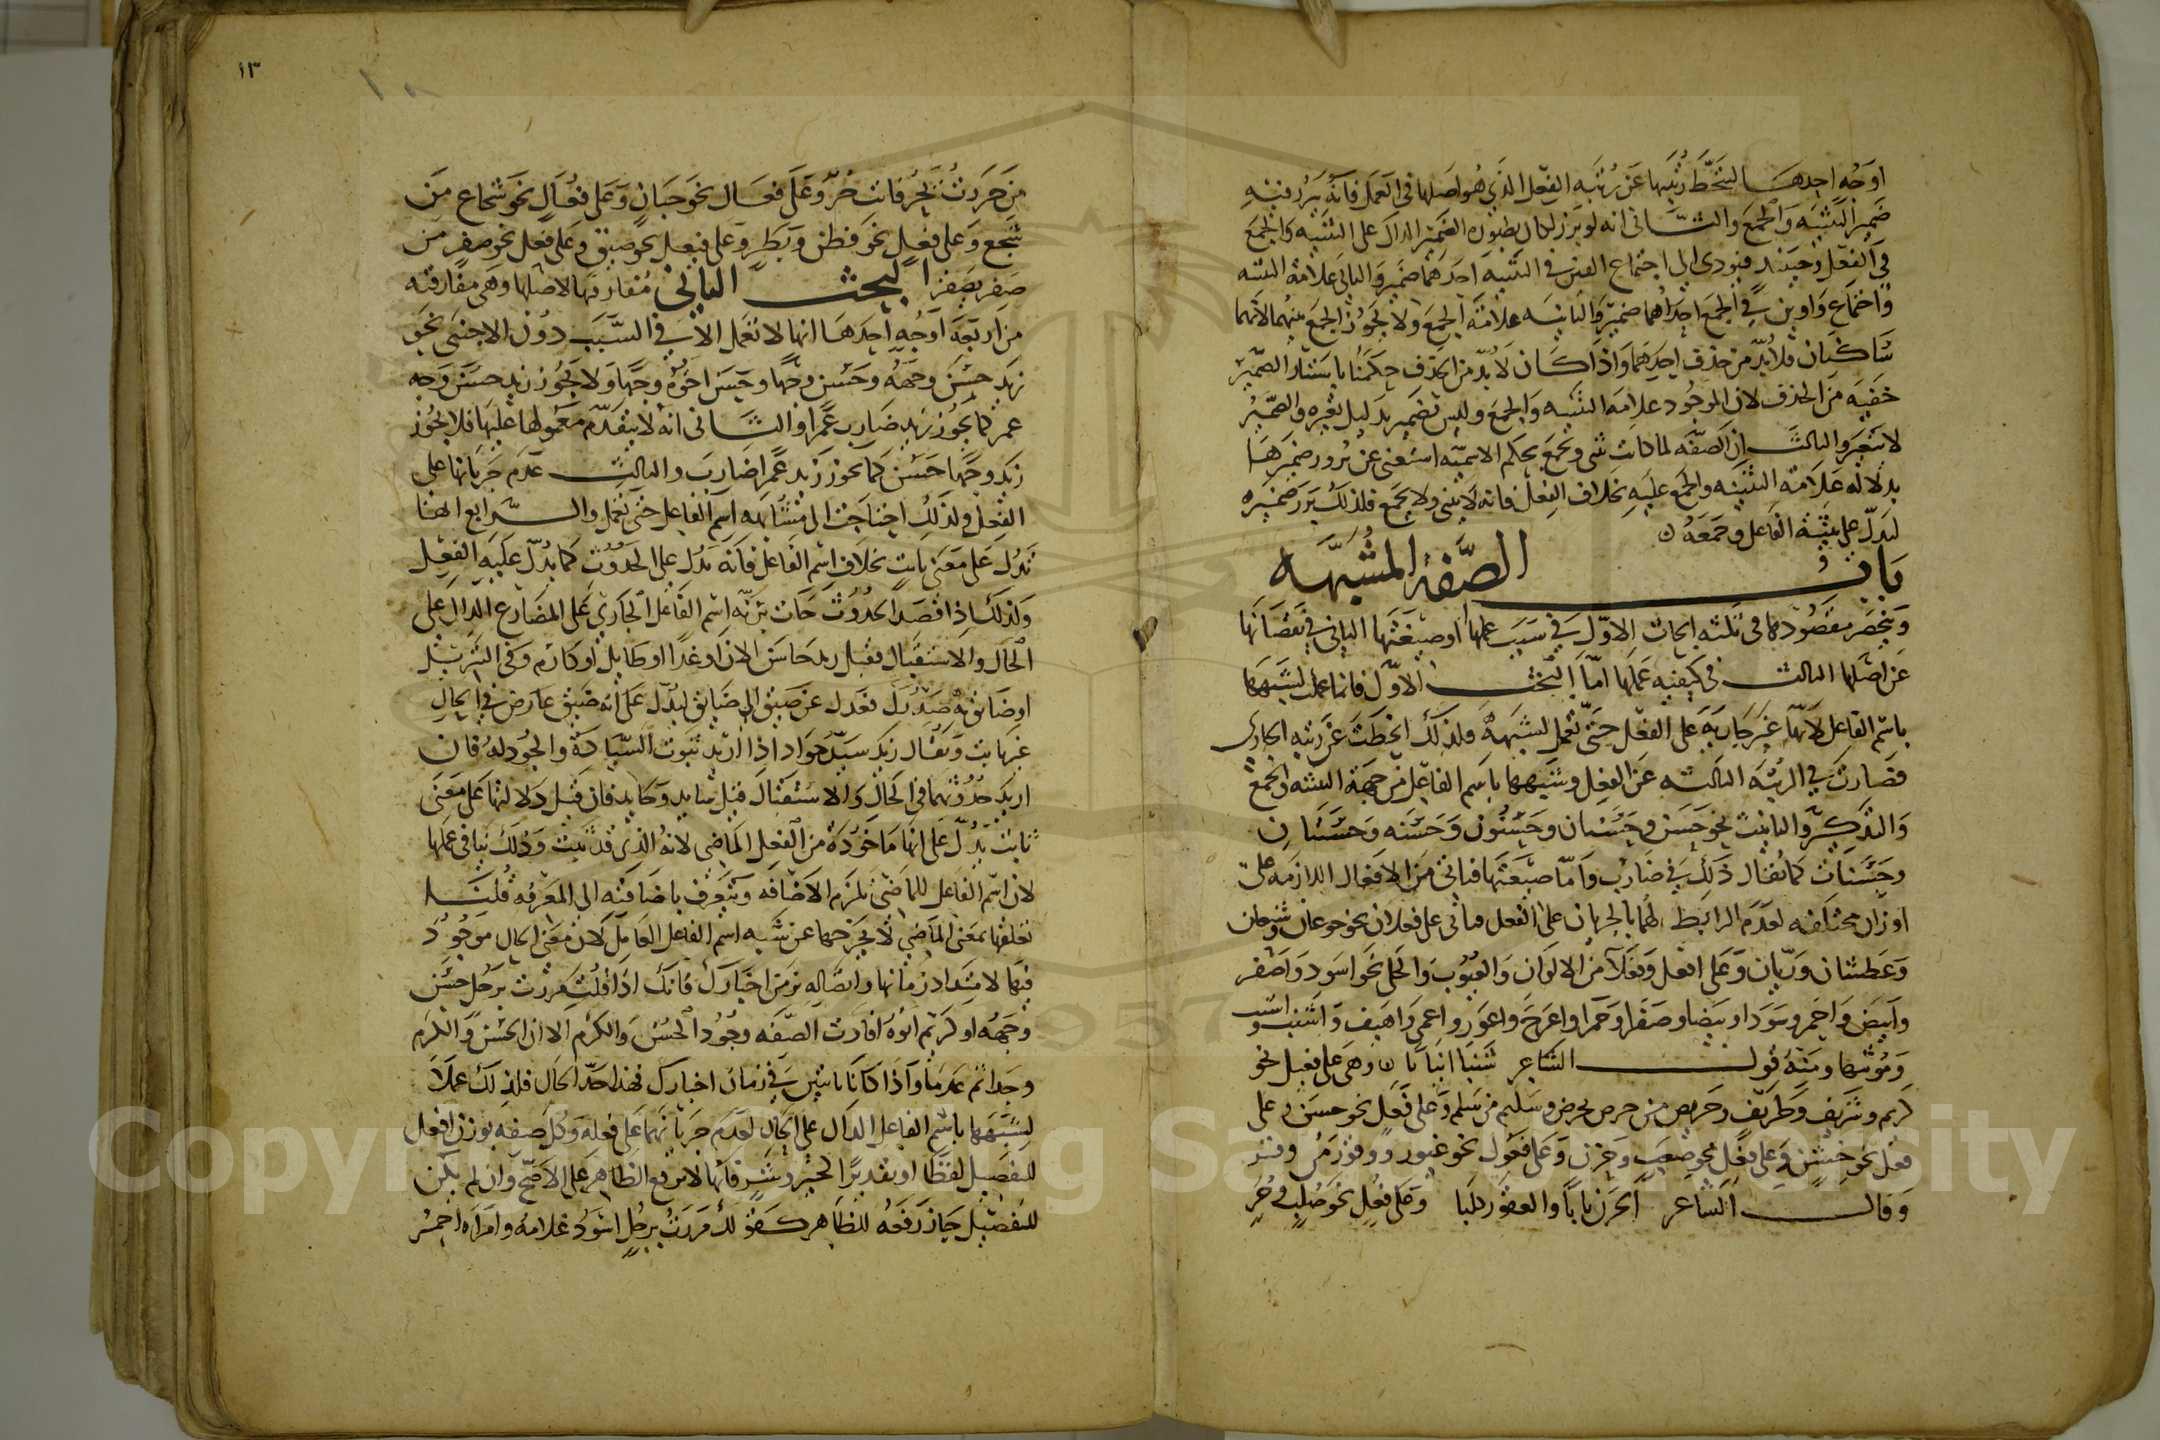 اوجه احدها لتنحط رتبتها عن رتبة الفعل الذي هو اصلها في العمل فانه يبرز فيه
ضمير التثنية والجمع والثاني انه لو برز لكان بصورة الضمير الدال على التثنية والجمع
في الفعل وحينئذ فيودي الى اجتماع الفين في التثنية احدهما ضمير والثاني علامة التثنية
واجتماع واوين في الجمع احداهما ضمير والثانية علامة الجمع ولا يجوز الجمع بينهما لانهما
ساكنان فلا بد من حذف احدهما واذا كان لا بد من الحذف حكمنا باستتار الضمير
خفية من الحذف لان الموجود علامة التثنية والجمع وليس بضمير بدليل تغيره والضمير
لا يتغير والثالث ان الصفة لما كانت تثنى وتجمع بحكم الاسمية استغنى عن بروز ضميرها
بدلالة علامة التثنية والجمع عليه بخلاف الفعل فانه لا يثنى ولا يجمع فلذلك يبرز ضميره
ليدل على تثنية الفاعل وجمعه
باب الصفة المشبهة
وينحصر مقصودها في ثلثة ابحاث الاول في سبب عملها وصيغتها الثاني في نقصانها
عن اصلها الثالث في كيفية عملها اما البحث الاول فانما عملت لشبهها
باسم الفاعل لانها غير جارية على الفعل حتى تعمل لشبهه فلذلك انحطت عن رتبة الجاري
فصارت في الرتبة الثالثة عن الفعل وشبهها باسم الفاعل من جهة التثنية والجمع
والتذكير والتانيث نحو حسن وحسنان وحسنون وحسنة وحسنتان
وحسنات كما يقال ذلك في ضارب واما صيغتها فتاتي من الافعال اللازمة على
اوزان مختلفة لعدم الرابط لها بالجريان على الفعل فتاتي على فعلان نحو جوعان وشبعان
وعطشان وريان وعلى افعل وفعلا من الالوان والعيوب والحلى نحو اسود واصفر
وابيض واحمر وسودا وبيضا وصفرا وحمرا واعرج واعور واعمى واهيف واشنب
ومونثها ومنه قول الشاعر شنبا انيابا وهي على فعيل نحو
كريم وشريف وظريف وحريص من حرص يحرص وسليم من سلم وعلى فعل نحو حسن وعلى
فعل نحو خشن وعلى فعل نحو صعب وحزن وعلى فعول نحو غيور ووقور
وقال الشاعر الحزن بابا والعقور كلبا وعلى فعل نحو صلب وحر
١٣
من حررت تحر فانت حر وعلى فعال نحو جبان وعلى فعال نحو شجاع من
شجع وعلى فعل نحو فطن وبطر وعلى فيعل نحو ضيق وعلى فعل نحو صفر من
صفر يصفر البحث الثاني مفارقتها لاصلها وهي مفارقته
من اربعة اوجه احدها انها لا تعمل الا في السبب دون الاجنبي نحو
زيد حسن وجهه وحسن وجها وحسن اخوه وجها ولا يجوز زيد حسن وجه
عمرو كما يجوز زيد ضارب عمرا والثاني انه لا يتقدم معمولها عليها فلا يجوز
زيد وجها حسن كما يجوز زيد عمرا ضارب والثالث عدم جريانها على
الفعل ولذلك احتاجت الى مشابهة اسم الفاعل حتى تعمل والرابع انها
تدل على معنى ثابت بخلاف اسم الفاعل فانه يدل على الحدوث كما يدل عليه الفعل
ولذلك اذا قصد الحدوث جات بزنة اسم الفاعل الجاري على المضارع الدال على
الحال والاستقبال فقيل زيد حاسن الان او غدا او طايل او كارم وفي التنزيل
وضائق به صدرك فعدل عن ضيق الى ضائق ليدل على انه ضيق عارض في الحال
غير ثابت ويقال زيد سيد جواد اذا اريد ثبوت السيادة والجود له فان
اريد حدوثهما في الحال والاستقبال قيل سايد وجايد فان قيل دلالتها على معنى
ثابت يدل على انها ماخوذة من الفعل الماضي لانه الذي قد ثبت وذلك ينافي عملها
لان اسم الفاعل للماضي يلزم الاضافة ويتعرف باضافته الى المعرفة قلنا
تعلقها بمعنى الماضي لا يخرجها عن شبه اسم الفاعل العامل لان معنى الحال موجود
فيها لامتداد زمانها واتصاله بزمن اخبارك فانك اذا قلت مررت برجل حسن
وجهه او كريم ابوه افادت الصفة وجود الحسن والكرم الا ان الحسن والكرم
وجدا ثم عدما واذا كانا ثابتين في زمان اخبارك فهذا حد الحال فلذلك عملا
لشبهها باسم الفاعل الدال على الحال لعدم جريانهما على فعله وكل صفة بوزن افعل
للتفضيل لفظا او تقديرا كخير وشر فانها لا ترفع الظاهر على الاصح وان لم يكن
للتفضيل جاز رفعه للظاهر كقولك مررت برجل اسود غلامه وامراة احمر